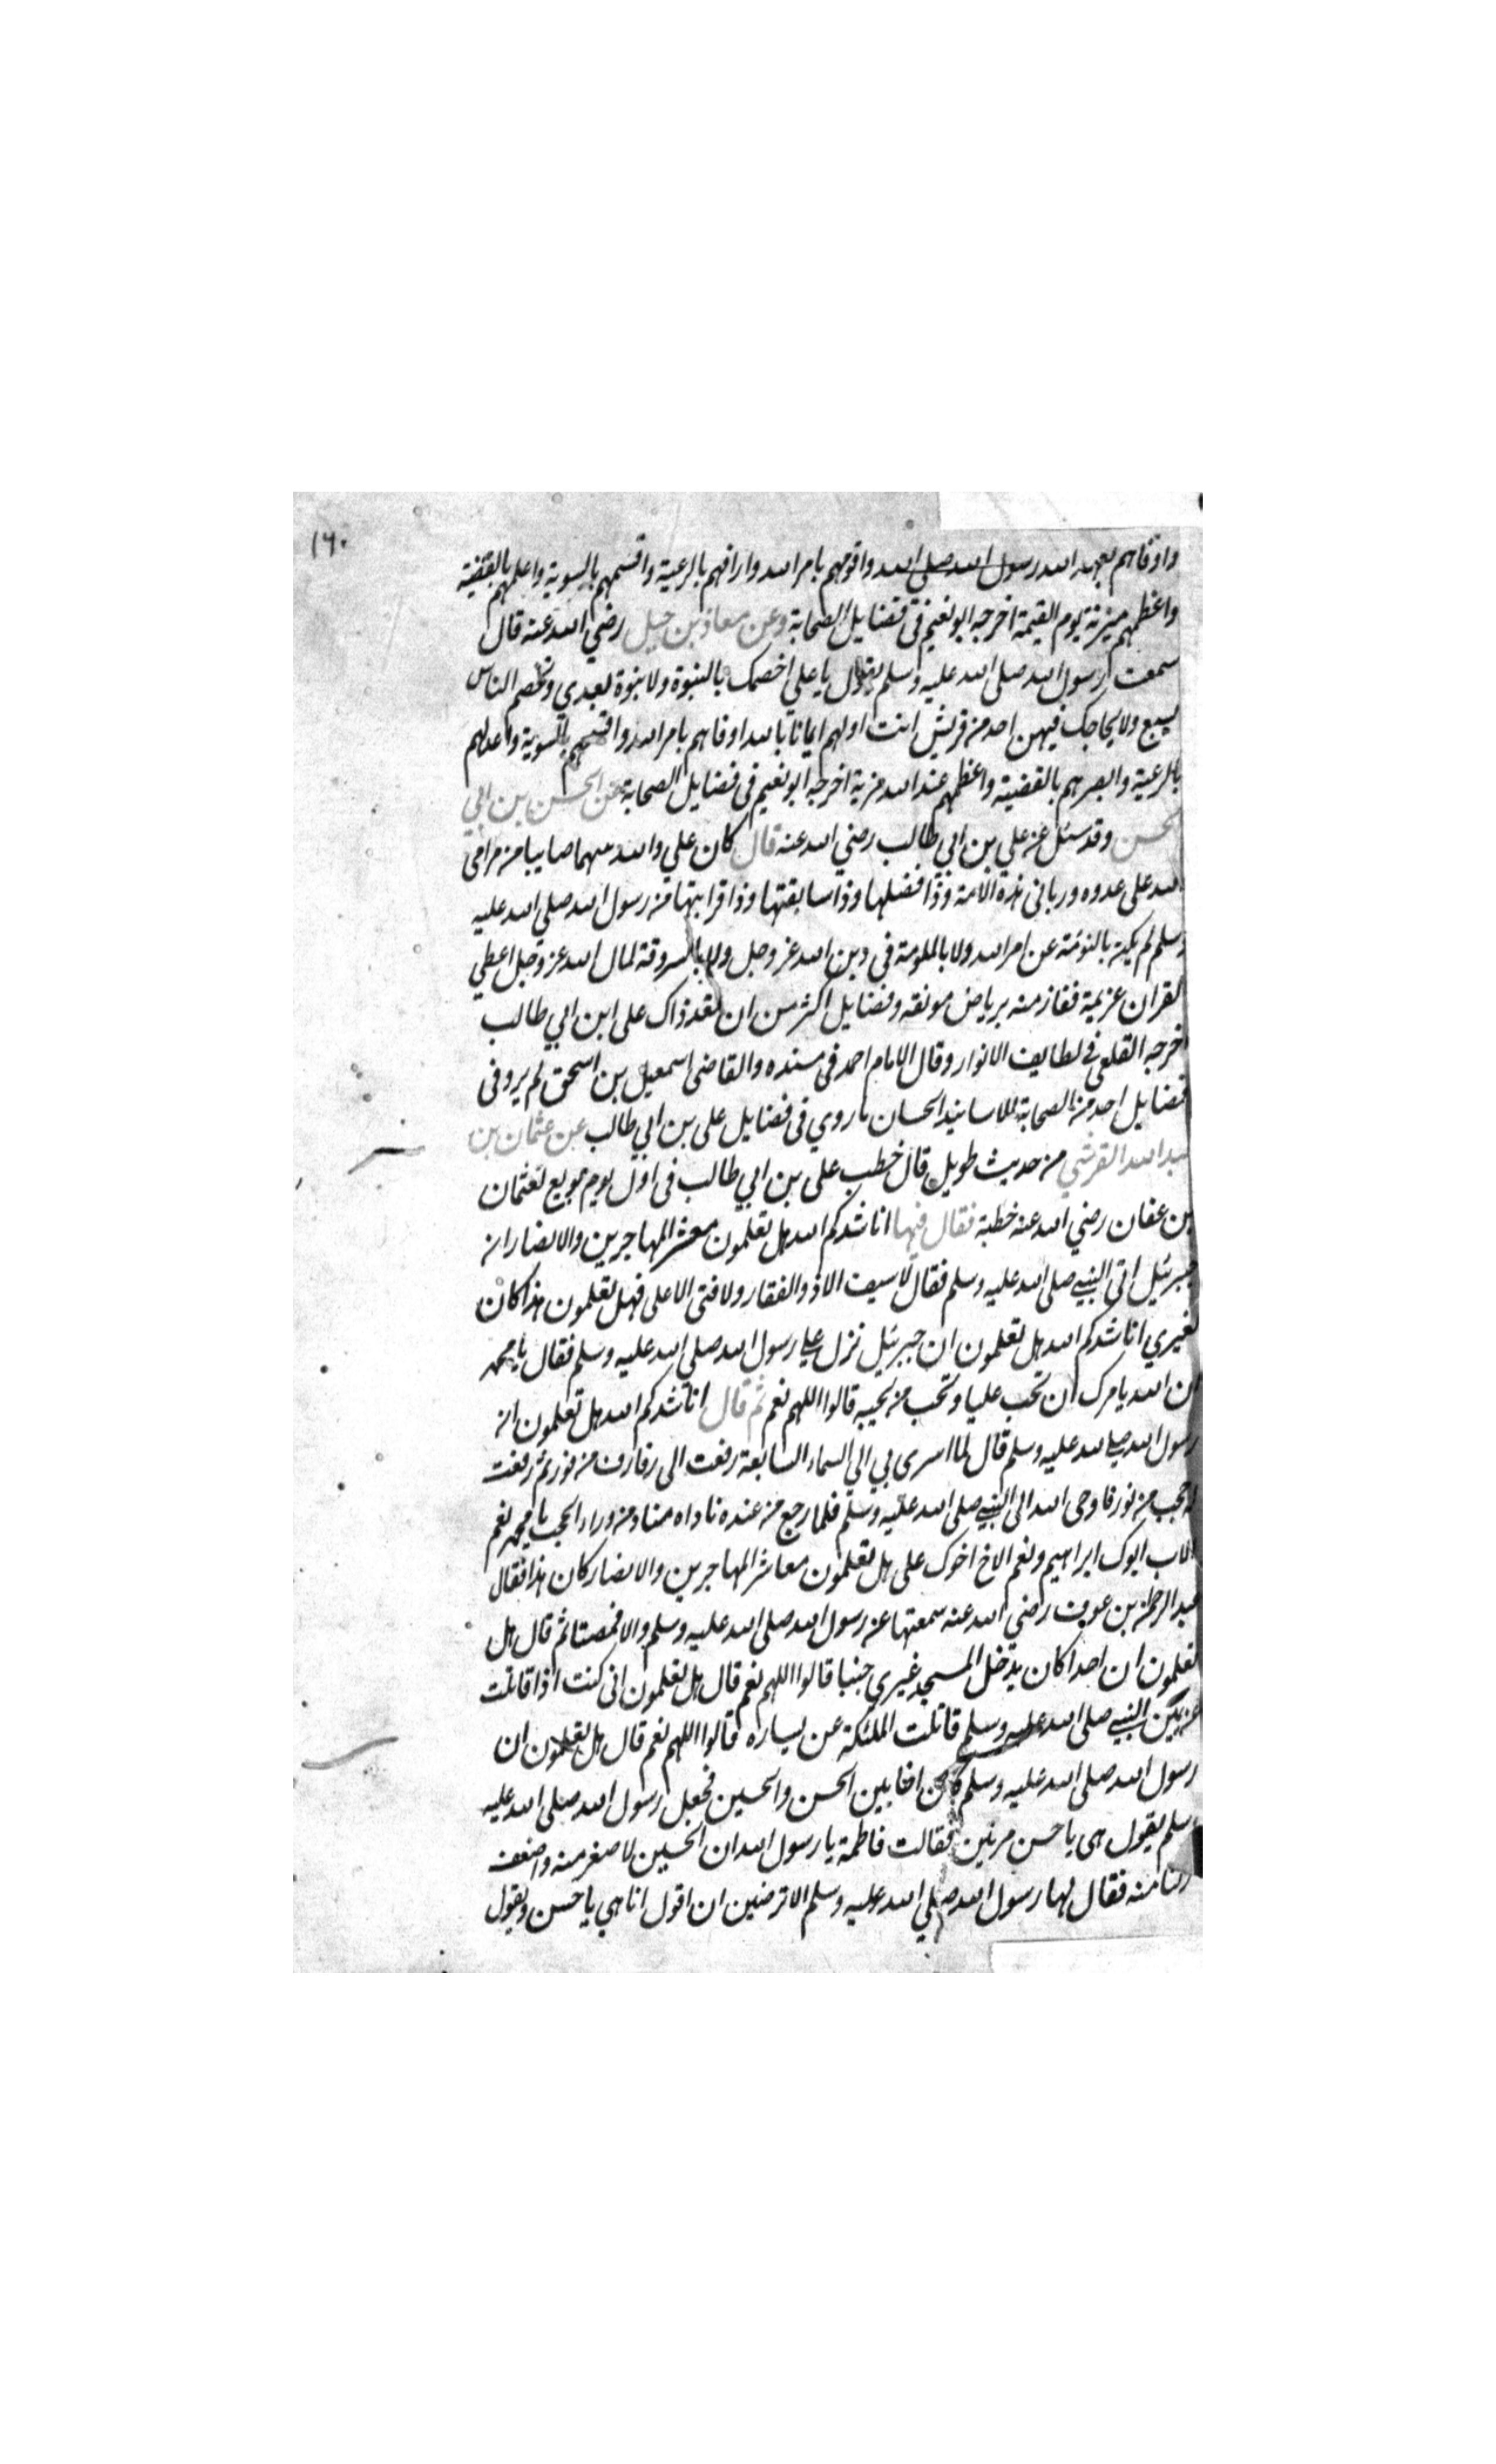 ١٦٠
واوفاهم بعهد الله رسول الله صلى الله واقومهم بامر الله وارافهم بالرعية واقسمهم بالسوية واعلمهم بالقضية
واعظمهم مزية يوم القيمة اخرجه ابو نعيم فى فضايل الصحابة وعن معاذ بن جبل رضي الله عنه قال
سمعت رسول الله صلى الله عليه وسلم يقول يا علي اخصمك بالنبوة ولا نبوة بعدي وتخصم الناس
بسبع ولا يحاجك فيهن احد من قريش انت اولهم ايمانا بالله اوفاهم بامر الله واقسمهم بالسوية واعدلهم
بالرعية وابصرهم بالقضية واعظمهم عند الله مزية اخرجه ابو نعيم فى فضايل الصحابة عن الحسن بن ابي
الحسن وقد سئل عن علي بن ابي طالب رضي الله عنه قال كان علي والله سهما صايبا من مرامى
الله على عدوه وربانى هذه الامة وذا فضلها وذا سابقتها وذا قرابتها من رسول الله صلى الله عليه
وسلم لم يكن بالنومة عن امر الله ولا بالملومة فى دين الله عز وجل ولا بالسروقة لمال الله عز وجل اعطي
القران عزيمة ففاز منه برياض مونقه وفضايل اكثر من ان تعد ذاك على ابن ابي طالب
اخرجه القلعي فى لطايف الانوار وقال الامام احمد فى مسنده والقاضى اسمعيل بن اسحق لم يرو فى
فضايل احد من الصحابة بالاسانيد الحسان ما روي فى فضايل على بن ابي طالب عن عثمان بن
عبد الله القرشي من حديث طويل قال خطب على بن ابي طالب فى اول يوم بويع لعثمان
بن عفان رضي الله عنه خطبة فقال فيها اناشدكم الله هل تعلمون معشر المهاجرين والانصار ان
جبرئيل اتى النبي صلى الله عليه وسلم فقال لا سيف الا ذو الفقار ولا فتى الا على فهل تعلمون هذا كان
لغيري اناشدكم الله هل تعلمون ان جبرئيل نزل على رسول الله صلى الله عليه وسلم فقال يا محمد
ان الله يامرك ان تحب عليا وتحب من يحبه قالوا اللهم نعم ثم قال اناشدكم الله هل تعلمون ان
رسول الله صلى الله عليه وسلم قال لما اسرى بي الى السماء السابعة رفعت الى رفارف من نور ثم رفعت
لي حجب من نور فاوحى الله الى النبي صلى الله عليه وسلم فلما رجع من عنده ناداه مناد من وراء الحجب يا محمد نعم
الاب ابوك ابراهيم ونعم الاخ اخوك على هل تعلمون معاشر المهاجرين والانصار كان هذا فقال
عبد الرحمن بن عوف رضي الله عنه سمعتها من رسول الله صلى الله عليه وسلم والا فصمتا ثم قال هل
تعلمون ان احدا كان يدخل المسجد غيري جنبا قالوا اللهم نعم قال هل تعلمون انى كنت اذا قاتلت
عن يمين النبي صلى الله عليه وسلم قاتلت الملئكة عن يساره قالوا اللهم نعم قال هل تعلمون ان
رسول الله صلى الله عليه وسلم كان اخا بين الحسن والحسين فجعل رسول الله صلى الله عليه
وسلم يقول هى يا حسن مرتين فقالت فاطمة يا رسول الله ان الحسين لاصغر منه واضعف
ركنا منه فقال لها رسول الله صلى الله عليه وسلم الا ترضين ان اقول انا هي يا حسن ويقول